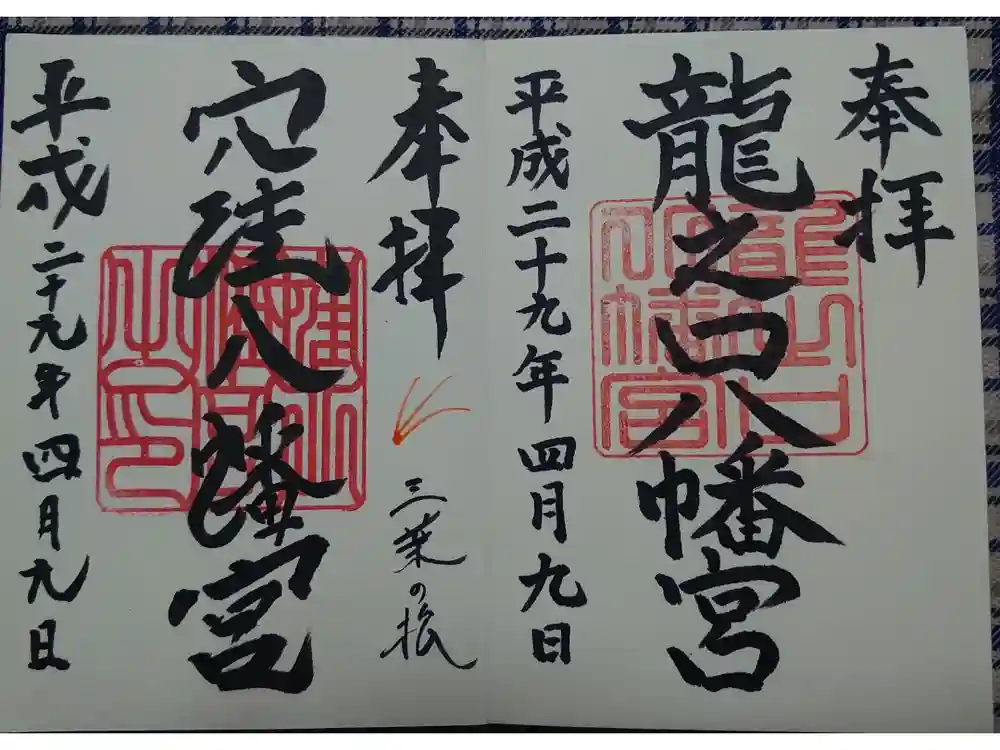 奉拝
龍之口八幡宮
平成二十九年四月九日
龍之口
八幡宮
奉拝
三葉の松
窪八幡宮
平成二十九年四月九日